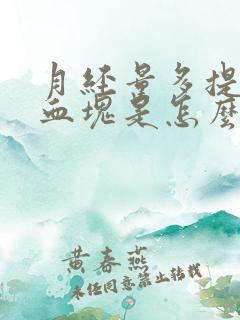 月经量多提
血块是怎么
黄春燕
未经同意禁止转载